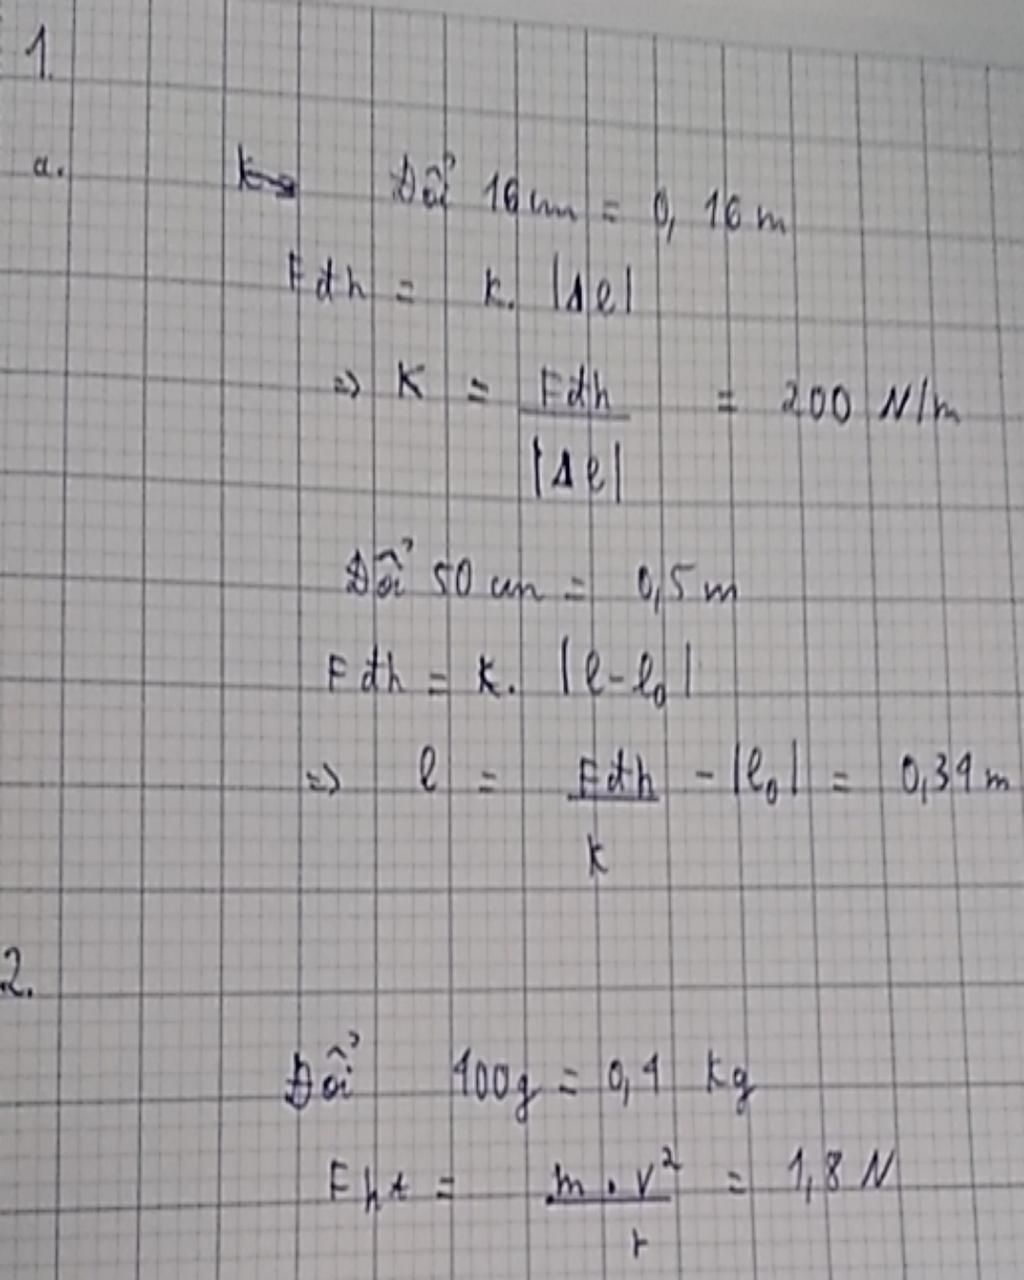 1.
a. Đổi 16 cm = 0,16 m
Fdh = k. |Δl|
=> K = Fdh / |Δl| = 200 N/m
Đổi 50 cm = 0,5 m
Fdh = k. |l-l₀|
=> l = Fdh / k - |l₀| = 0,34 m
2.
Đổi 100g = 0,1 kg
Fht = m.v² / r = 1,8 N